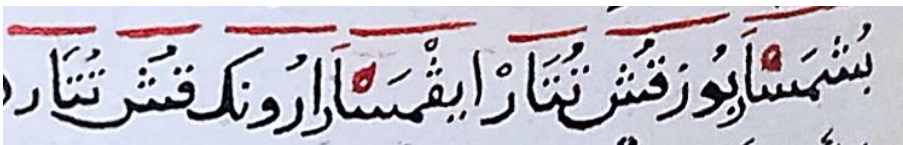 بُشْمَسَا بُوز قُش تُتَارْ ايڤْمَسَا رارُونك قُش تُتَار